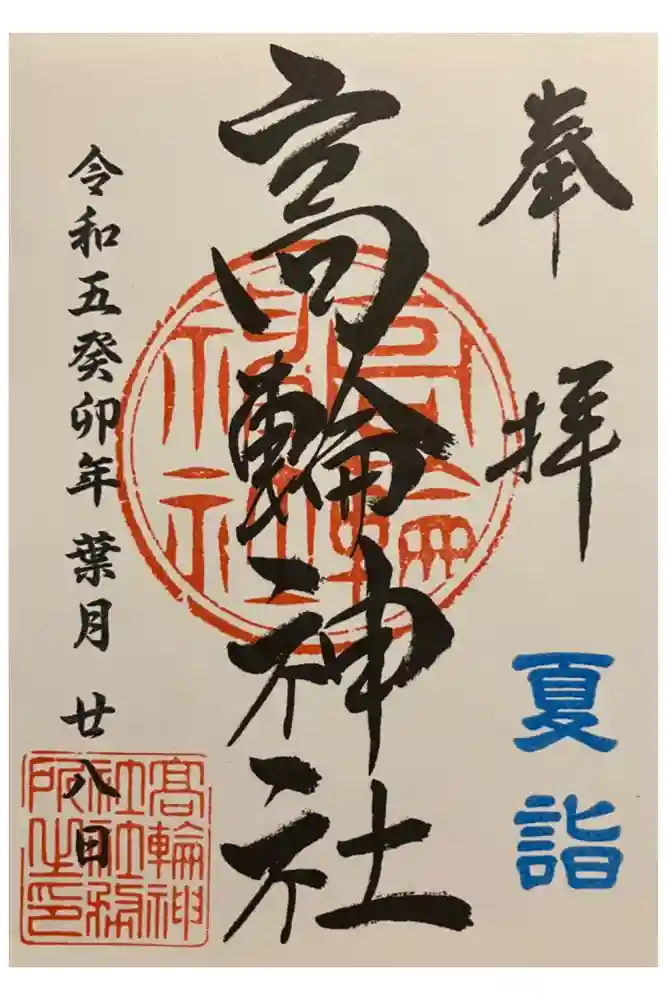 奉拝
夏詣
高輪神社
高輪神社
令和五癸卯年葉月 廿八日
髙輪神
社社務
所之印